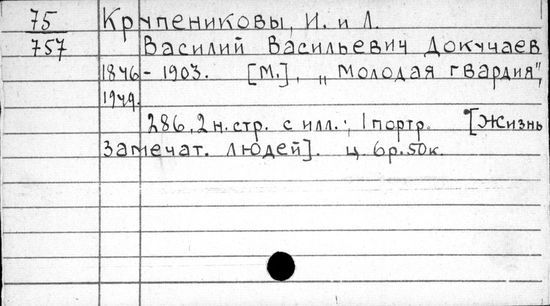 75 Крупениковы, И. и Л.
757 Василий Васильевич Докучаев
1846 - 1903. [М.], „Молодая гвардия",
1949.
286, 2 н. стр. с илл.; 1 портр. [Жизнь
замечат. людей]. ц. 6р. 50к.